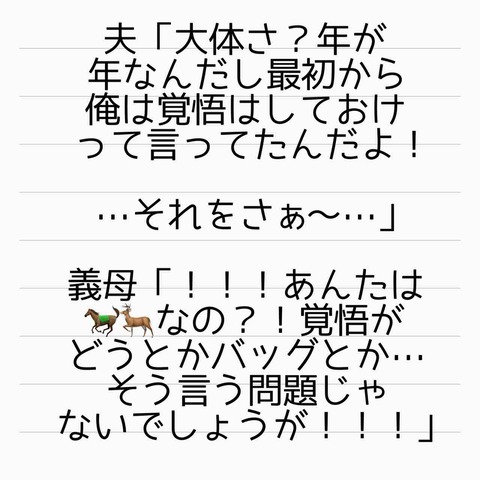 夫「大体さ？年が
年なんだし最初から
俺は覚悟はしておけ
って言ってたんだよ！
…それをさぁ〜…」
義母「！！！あんたは
🐎🦌なの？！覚悟が
どうとかバッグとか…
そう言う問題じゃ
ないでしょうが！！！」